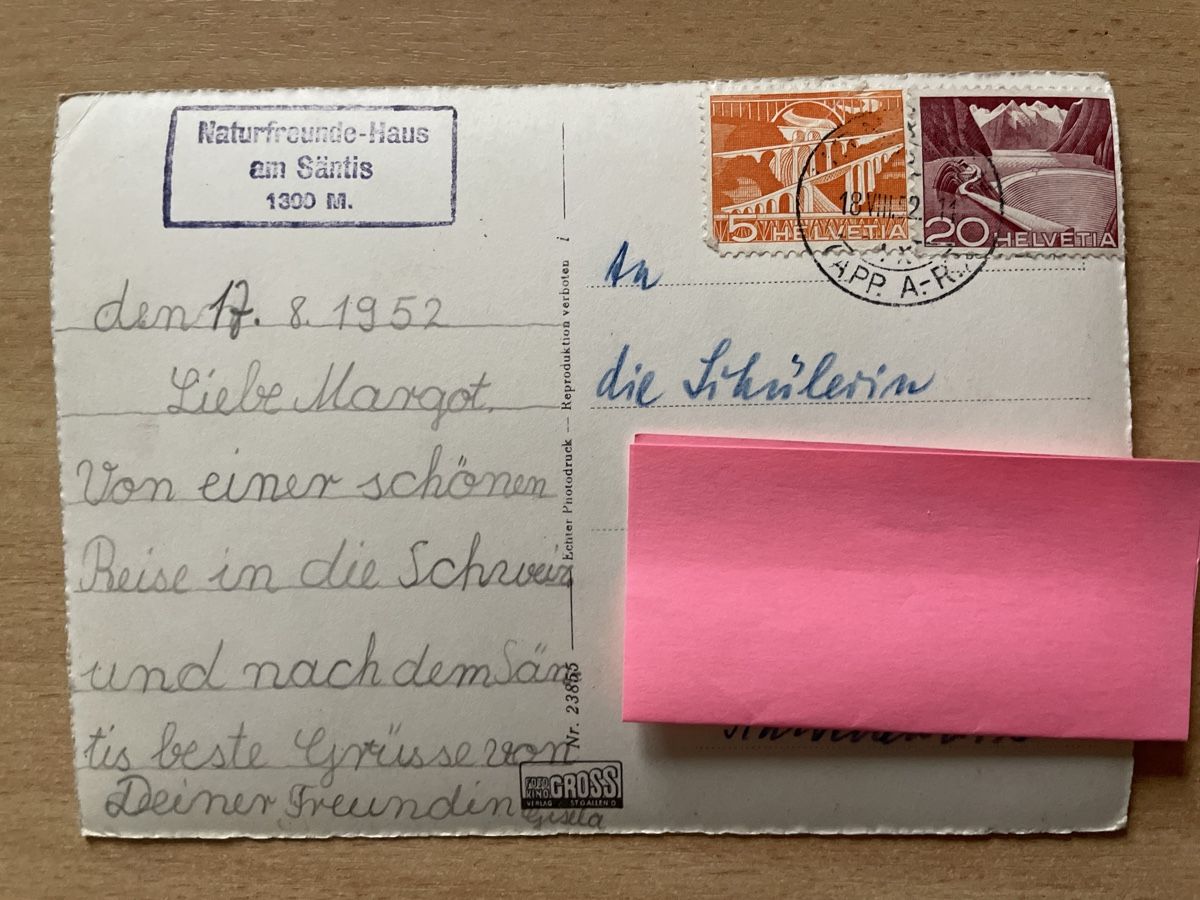 Naturfreunde-Haus
am Säntis
1300 M.
den 17. 8. 1952
Liebe Margot.
Von einer schönen
Reise in die Schweiz
und nach dem Sän
tis beste Grüsse von
Deiner Freundin
Gisela
Nr. 23855 Echter Photodruck — Reproduktion verboten i
FOTO KINO GROSS
VERLAG / ST GALLEN O
5 HELVETIA
20 HELVETIA
18.VIII.52. 11
APP. A.-R.
An
die Schülerin